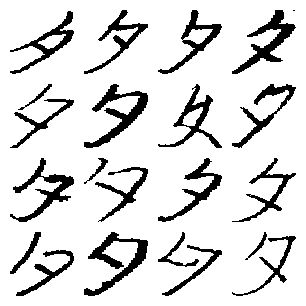 タタタタ
タタタタ
タタタタ
タタタタ